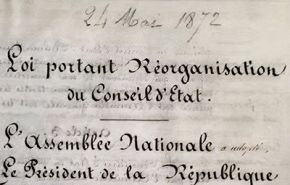 24 Mai 1872
Loi portant Réorganisation
du Conseil d'État.
L'Assemblée Nationale a adopté,
Le Président de la République